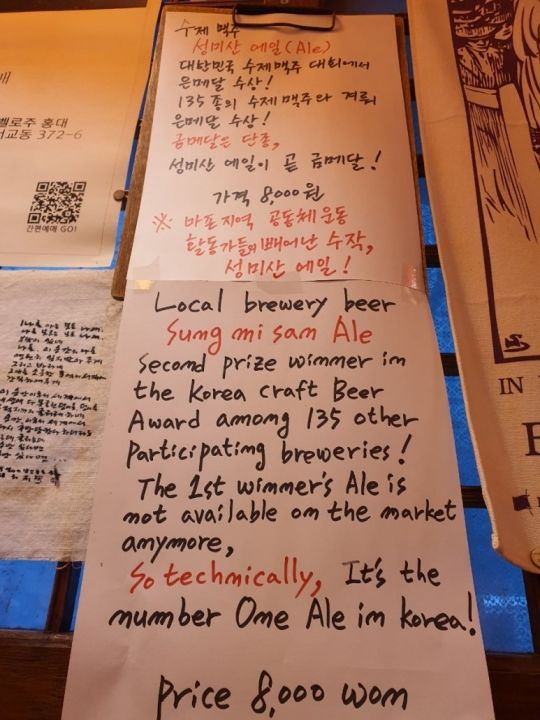 수제 맥주
성미산 에일(Ale)
대한민국 수제맥주 대회에서
은메달 수상!
135종의 수제 맥주와 겨뤄
은메달 수상!
금메달은 단종,
성미산 에일이 곧 금메달!
가격 8,000원
※ 마포지역 공동체 운동
활동가들의 빼어난 수작,
성미산 에일!
Local brewery beer
Sung mi san Ale
Second prize winner in
the Korea craft Beer
Award among 135 other
Participating breweries!
The 1st winner's Ale is
not available on the market
anymore,
So technically, It's the
number One Ale in korea!
Price 8,000 won
벨로주 홍대
서교동 372-6
간편예매 GO!
IN